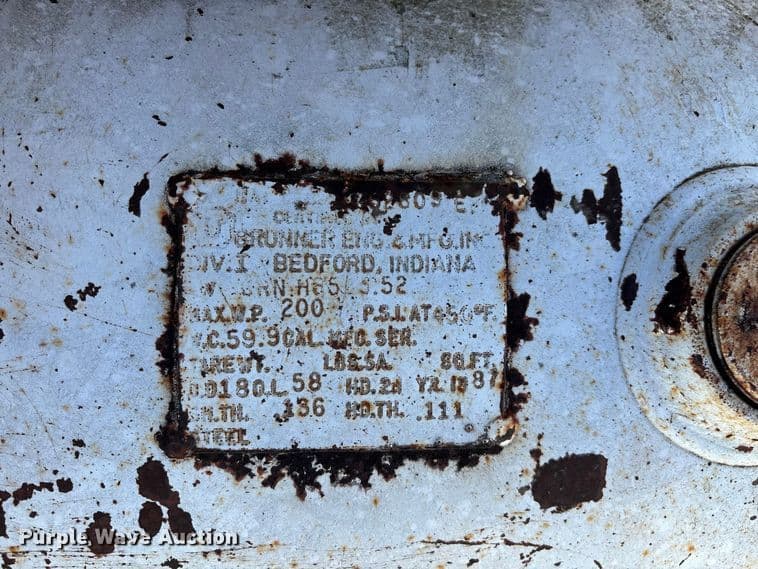 BRUNNER ENG. & MFG. IN
IV. I BEDFORD, INDIANA
MAX.W.P. 200 P.S.I. AT 450°F.
W.C. 59.9 GAL. MFG. SER.
TAREWT. LBS. SA. SQ. FT.
O.D 180.L. 58 HD. 2:1 YR. 19 87
SH. TH. .136 HD. TH. .111
STEEL
Purple Wave Auction